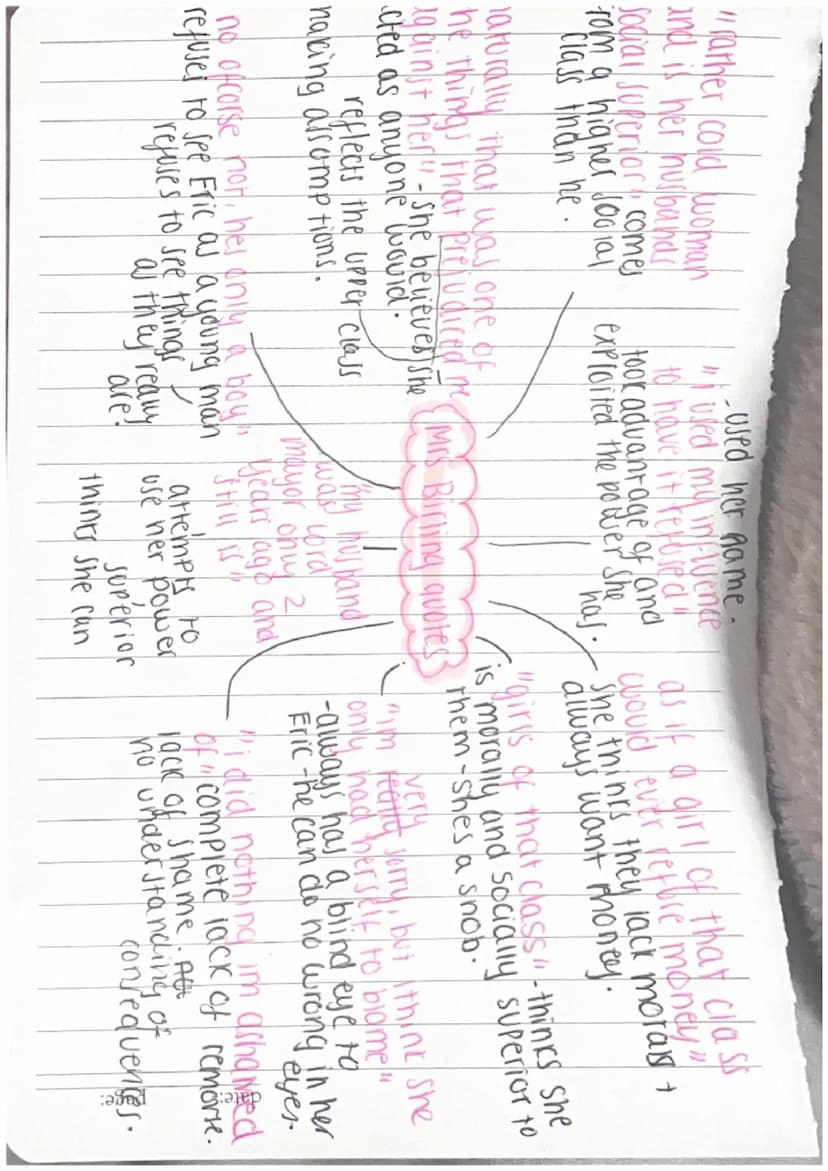 "rather cold woman
and is her husbands
social superior", comes
from a higher social
class than he.
- used her name.
"i used my influence
to have it refused"
took advantage of and
exploited the power she
has.
as if a girl of that class
would ever refuse money"
she thinks they lack morals +
always want money.
naturally that was one of
the things that prejudiced me
against her" - she believes she
acted as anyone would.
reflects the upper class
making assomptions.
Mrs Birling quotes
"girls of that class" - thinks she
is morally and socially superior to
them - shes a snob.
no ofcorse not, hes only a boy"
refuses to see Eric as a young man
refuses to see things
as they really
are.
"my husband
was lord
mayor only 2
years ago and
still is"
attempts to
use her power
superior
thinks she can
"im very sorry, but i think she
only had herself to blame"
- always has a blind eye to
Eric - he can do no wrong in her
eyes.
"i did nothing im ashamed
of" complete lack of remorse.
lack of shame.
no understanding of
consequences.
date:
page: